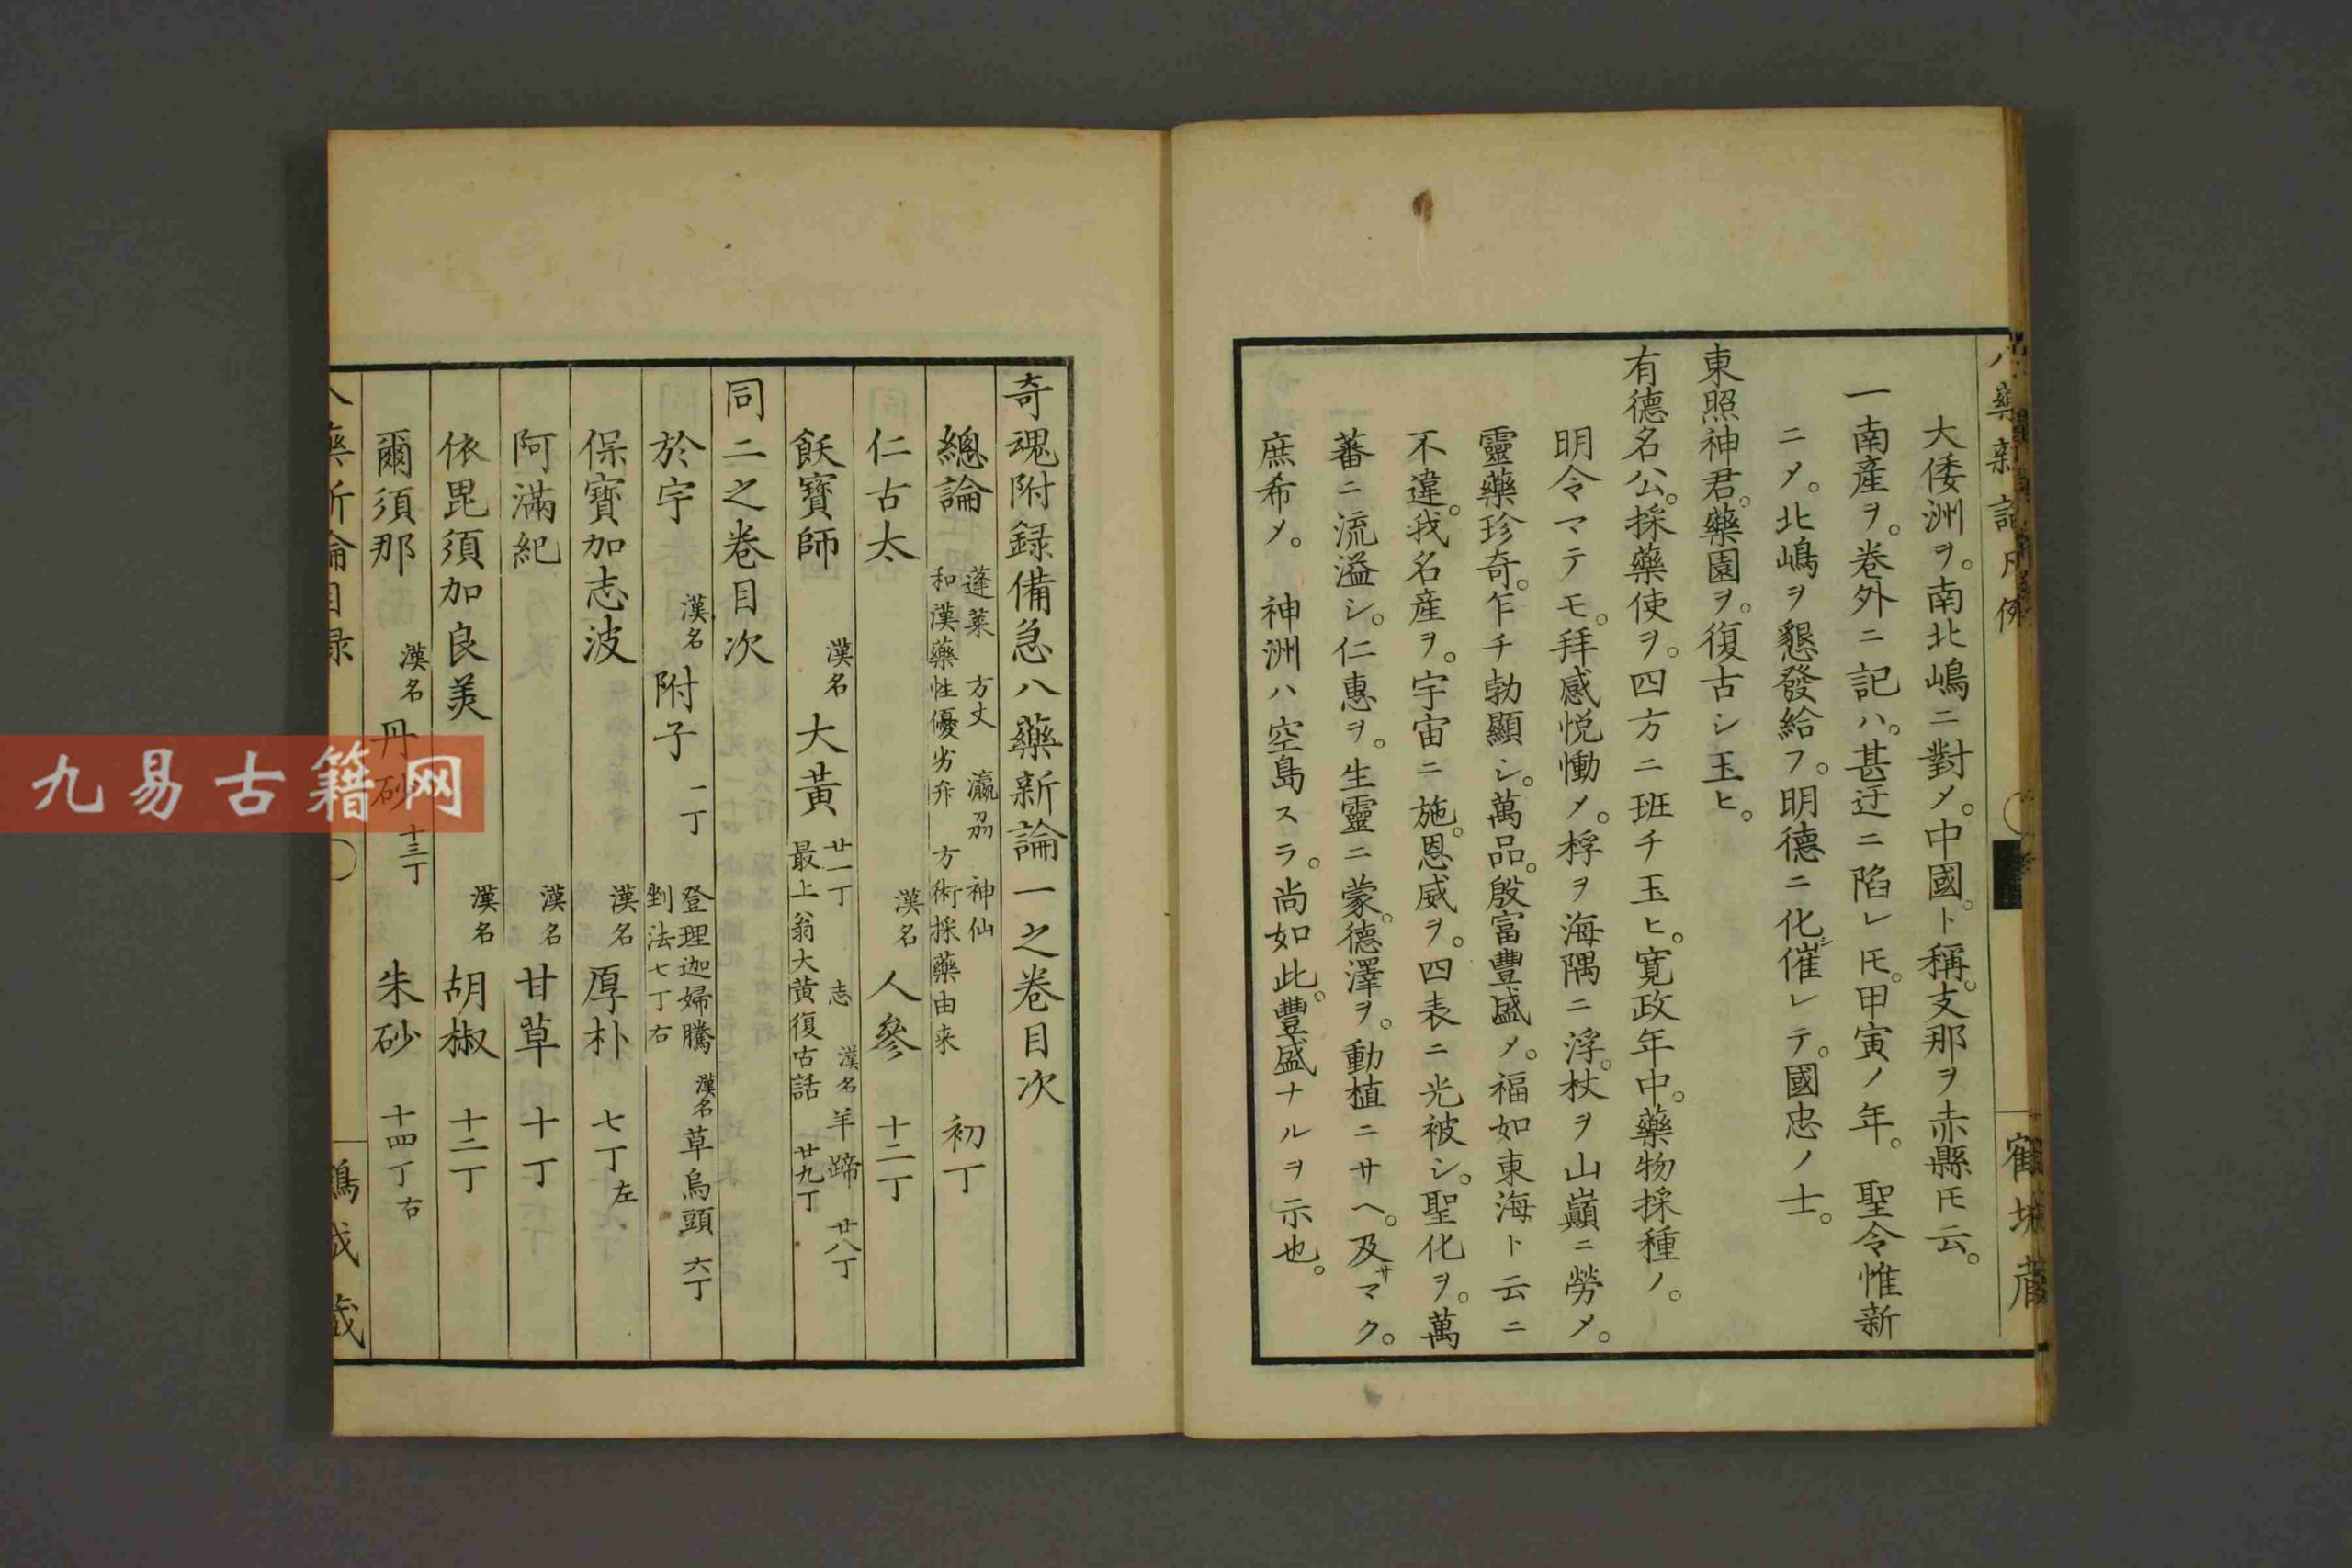 八藥新論凡例
大倭洲ヲ。南北嶋ニ對メ。中國。ト稱。支那ヲ赤縣𪜈云。
一南産ヲ。卷外ニ記ハ。甚迂ニ陷レ𪜈。甲寅ノ年。聖令惟新
ニメ。北嶋ヲ懇發給フ。明德ニ化催レテ。國忠ノ士。
東照神君。藥園ヲ。復古シ玉ヒ。
有德名公。採藥使ヲ。四方ニ班チ玉ヒ。寛政年中。藥物採種ノ。
明令マテモ。拜感悦慟メ。桴ヲ海隅ニ浮。杖ヲ山巓ニ勞メ。
靈藥珍奇。乍チ勃顯シ。萬品。殷富豐盛メ。福如東海ト云ニ
不違。我名産ヲ。宇宙ニ施。恩威ヲ。四表ニ光被シ。聖化ヲ。萬
蕃ニ流溢シ。仁惠ヲ。生靈ニ蒙。德澤ヲ。動植ニサヘ。及サマク。
庶希メ。神洲ハ空島スラ。尚如此。豐盛ナルヲ示也。
奇魂附録備急八藥新論一之卷目次
總論 蓬萊 方丈 瀛刕 神仙
和漢藥性優劣弁 方術採藥由来 初丁
仁古太 漢名 人參 十二丁
飫寶師 漢名 大黃 廿一丁 志 漢名 羊蹄 廿八丁
最上翁大黄復古話 廿九丁
同二之卷目次
於宇 漢名 附子 二丁 登理迦婦騰 漢名 草烏頭 六丁
剉法七丁右
保寶加志波 漢名 厚朴 七丁左
阿滿紀 漢名 甘草 十丁
依毘須加良美 漢名 胡椒 十二丁
爾須那 漢名 丹砂 十三丁 朱砂 十四丁右
八藥新論目録
九易古籍网